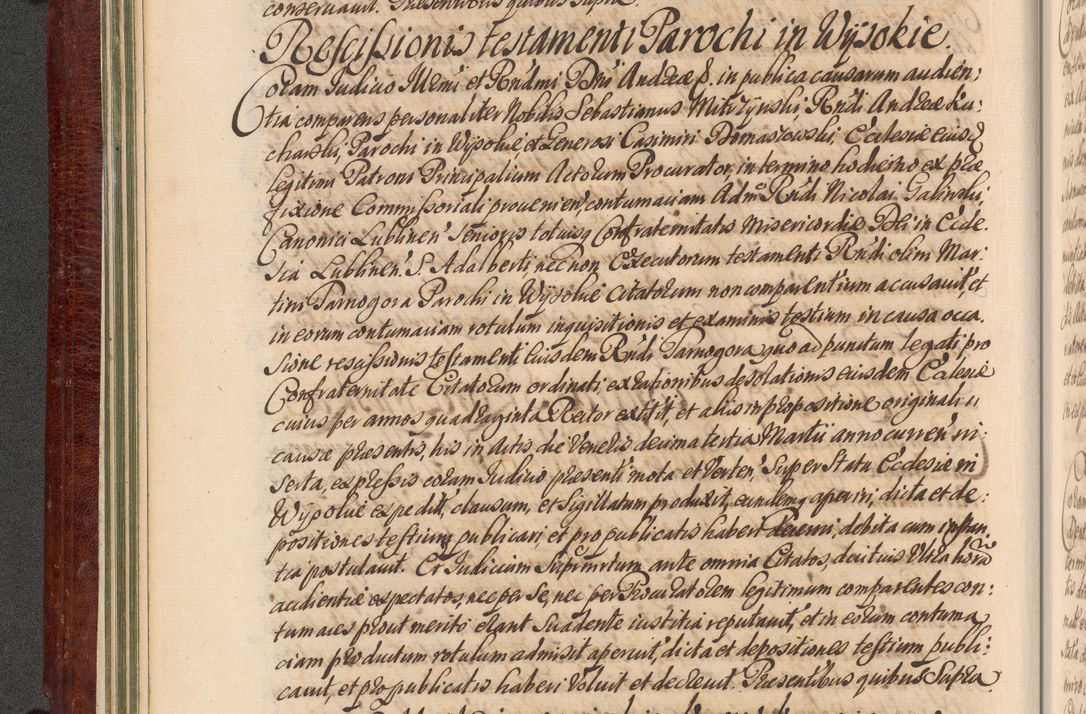 conservavit. Praesentibus quibus supra.
Rescissionis testamenti Parochi in Wysokie.
Coram Judicio Illrmi et Rndmi Dni Andreae S. in publica causarum audien:
tia comparens personaliter Nobilis Sebastianus Mitrzynski, Rndi Andreae Ku:
charski, Parochi in Wysokie et Generosi Casimiri Domaszewski, Ecclesiae eiusd
legitimi Patroni Principalium Actorum Procurator, in termino hodierno ex prae
fixione Commissoriali provenien, contumaciam Adm Rndi Nicolai Galinski,
Canonici Lublinen Senioris totiusq Confraternitatis Misericordiae Dei in Eccle.
sia Lublinen S. Adalberti, nec non Executorum testamenti Rndi olim Mar:
tini Tarnogora Parochi in Wysokie citatorum non comparentium accusavit, et
in eorum contumaciam rotulum inquisitionis et examinis testium in causa occa.
sione rescissionis testamenti eiusdem Rndi Tarnogora quo ad punctum legati, pro
Confraternitate Citatorum ordinati ex rationibus desolationis eiusdem Ecclesiae
cuius per annos quadraginta Rector extitit, et aliis in propositione originali
causae praesentis, his in Actis die Veneris decima tertia Martii anno curren in
serta, expressis coram Judicio praesenti mota et verten, super statu Ecclesiae in
Wysokie expedit, clausum, et sigillatum produxit, eundemq aperiri, dicta et de:
positiones testium publicari, et pro publicatis haberi decerni, debita cum instan
tia postulavit. Et Judicium ante omnia Citatos, ultra horam
audientiae expectatos, nec per se, nec per Procuratorem legitimum comparentes con:
tumaces prout merito erant suadente iustitia reputavit, et in eorum contuma
ciam productum rotulum admisit aperuit, dicta et depositiones testium publi:
cavit, et pro publicatis haberi voluit et decrevit. Praesentibus quibus supra.